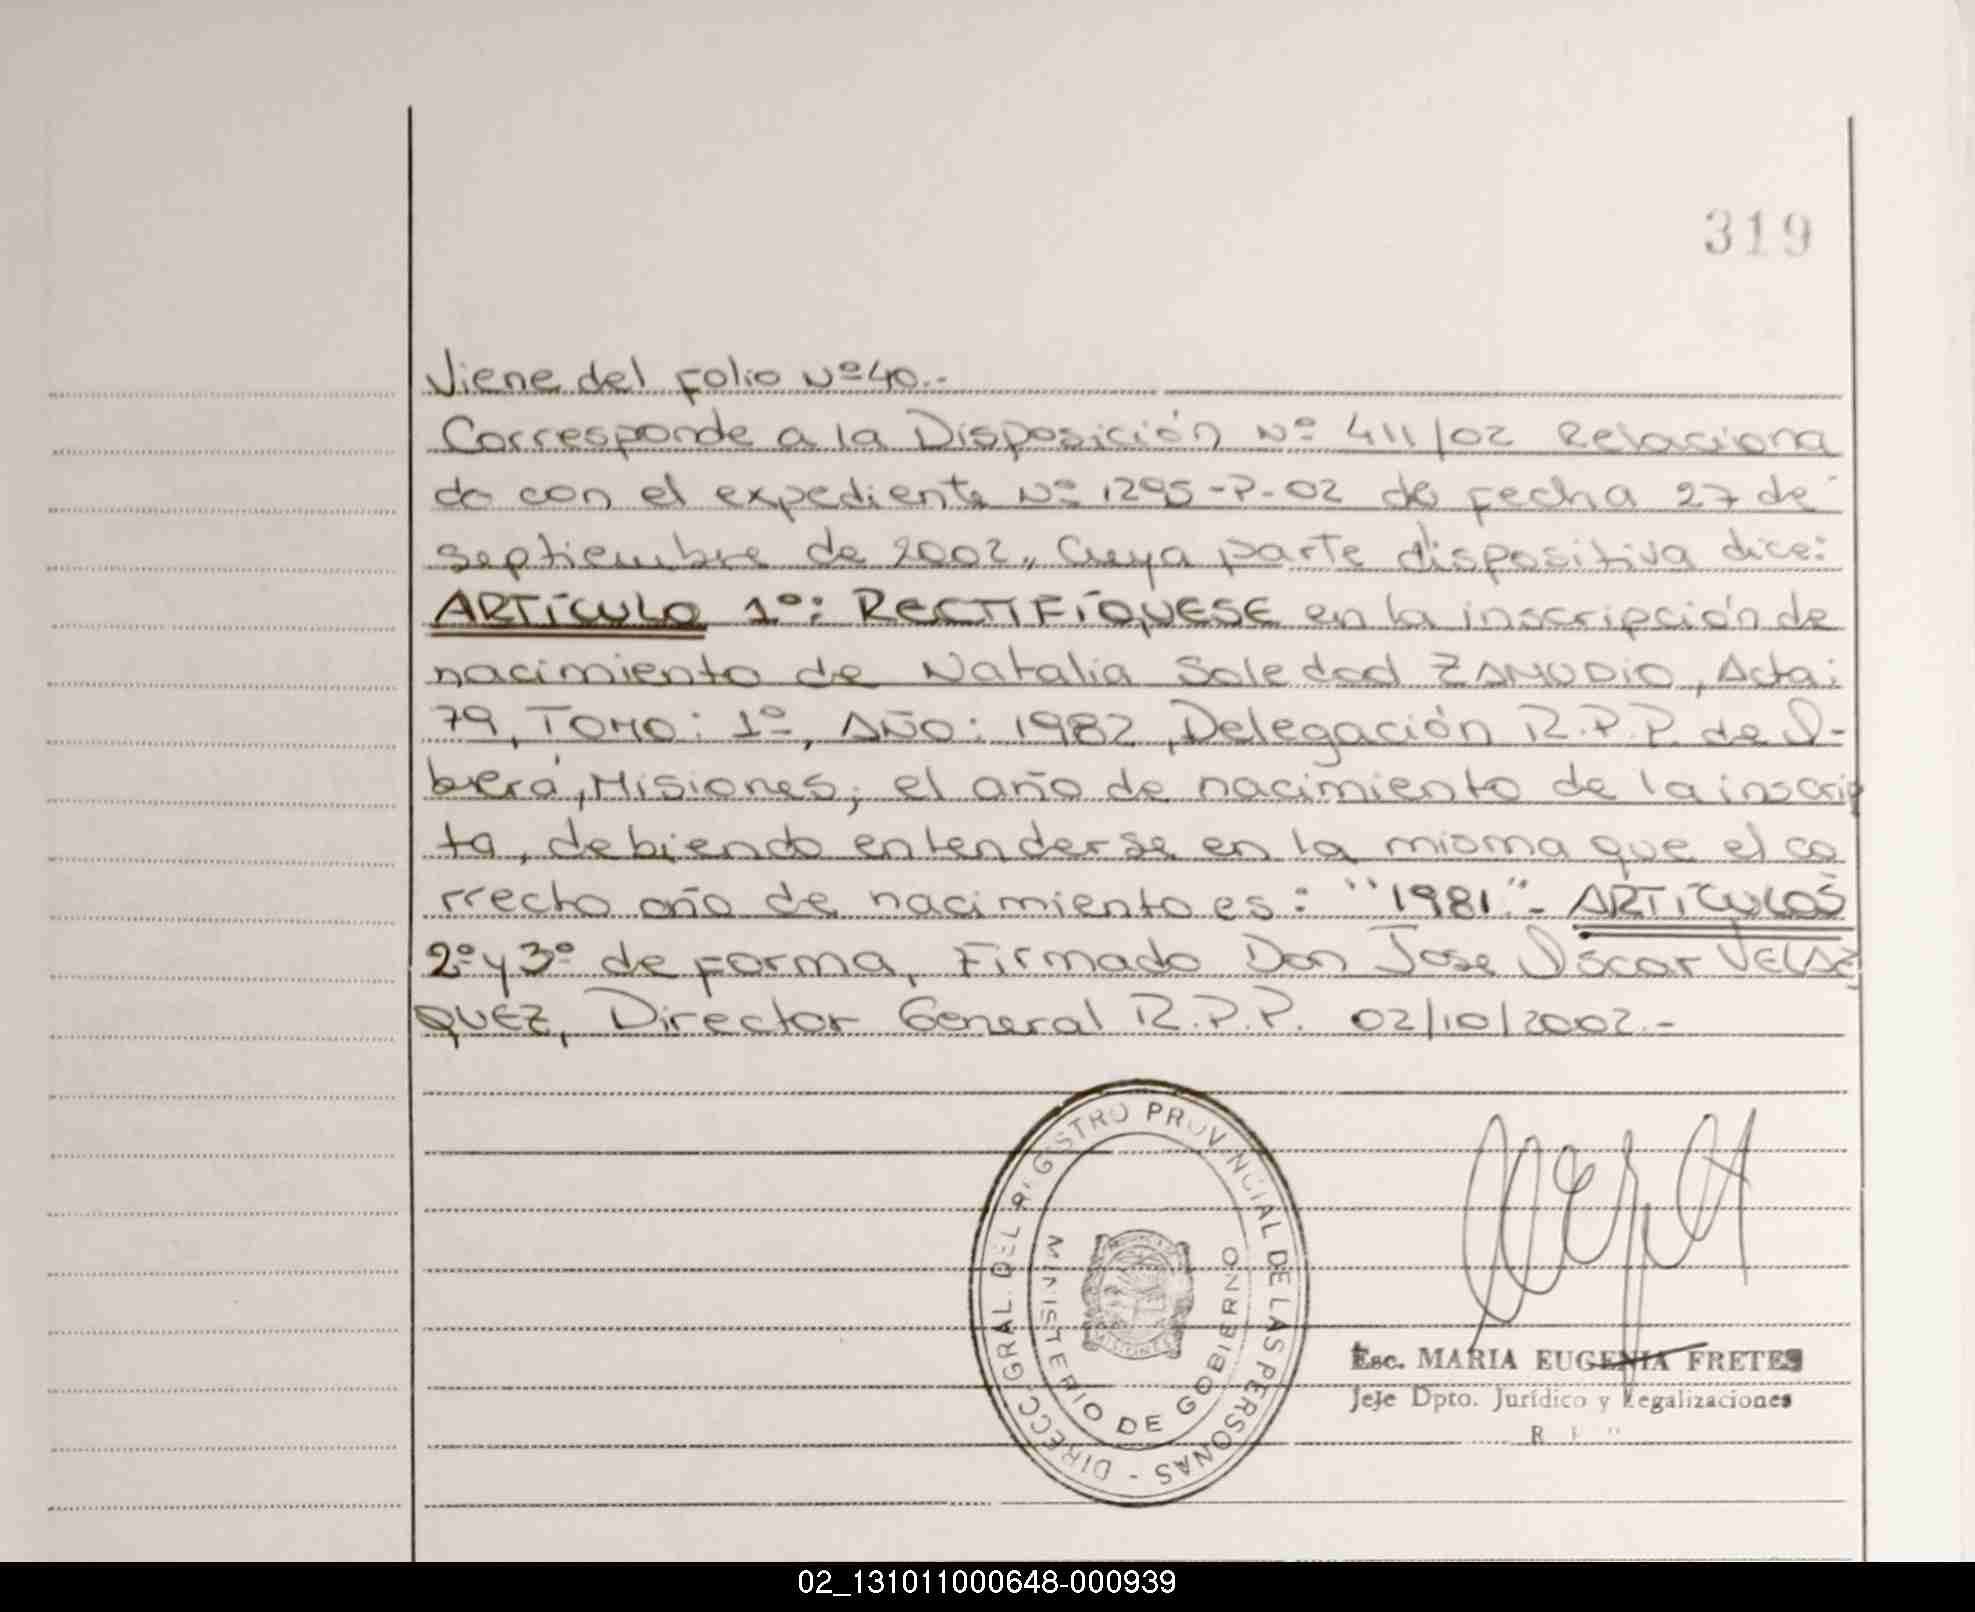 319
Viene del folio Nº 40.-
Corresponde a la Disposición Nº 411/02 Relaciona
do con el expediente Nº 1295-P-02 de fecha 27 de
septiembre de 2002, cuya parte dispositiva dice:
ARTÍCULO 1º: RECTIFÍQUESE en la inscripción de
nacimiento de Natalia Soledad ZAMUDIO, Acta:
79, TOMO: 1º, AÑO: 1982, Delegación R.P.P. de I-
berá, Misiones; el año de nacimiento de la inscrip
ta, debiendo entenderse en la misma que el co
rrecto año de nacimiento es: "1981".- ARTÍCULOS
2º y 3º de forma, Firmado Don Jose Oscar VELAZ
QUEZ, Director General R.P.P. 02/10/2002.-
DIRECC. GRAL. DEL REGISTRO PROVINCIAL DE LAS PERSONAS -
MINISTERIO DE GOBIERNO
MISIONES
Esc. MARIA EUGENIA FRETES
Jefe Dpto. Jurídico y Legalizaciones
R.
02_131011000648-000939